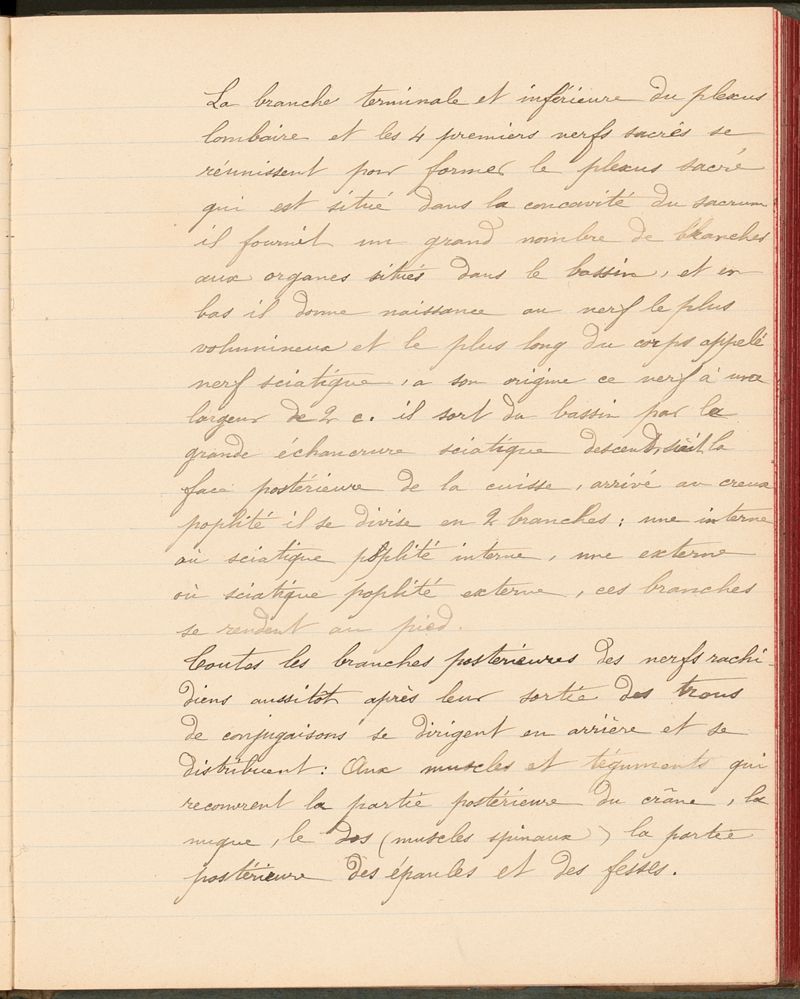 La branche terminale et inférieure du plexus
lombaire et les 4 premiers nerfs sacrés se
réunissent pour former le plexus sacré
qui est situé dans la concavité du sacrum
il fournit un grand nombre de branches
aux organes situés dans le bassin, et en
bas il donne naissance au nerf le plus
volumineux et le plus long du corps appelé
nerf sciatique, a son origine ce nerf à une
largeur de 2 c. il sort du bassin par la
grande échancrure sciatique descend suit la
face postérieure de la cuisse, arrivé au creux
poplité il se divise en 2 branches : une interne
où sciatique poplité interne, une externe
où sciatique poplité externe, ces branches
se rendent au pied.
Toutes les branches posterieures des nerfs rachi-
diens aussitôt après leur sortie des trous
de conjugaisons se dirigent en arrière et se
distribuent : Aux muscles et téguments qui
recouvrent la partie postérieure du crâne, la
nuque, le dos (muscles spinaux) la partie
postérieure des épaules et des fesses.